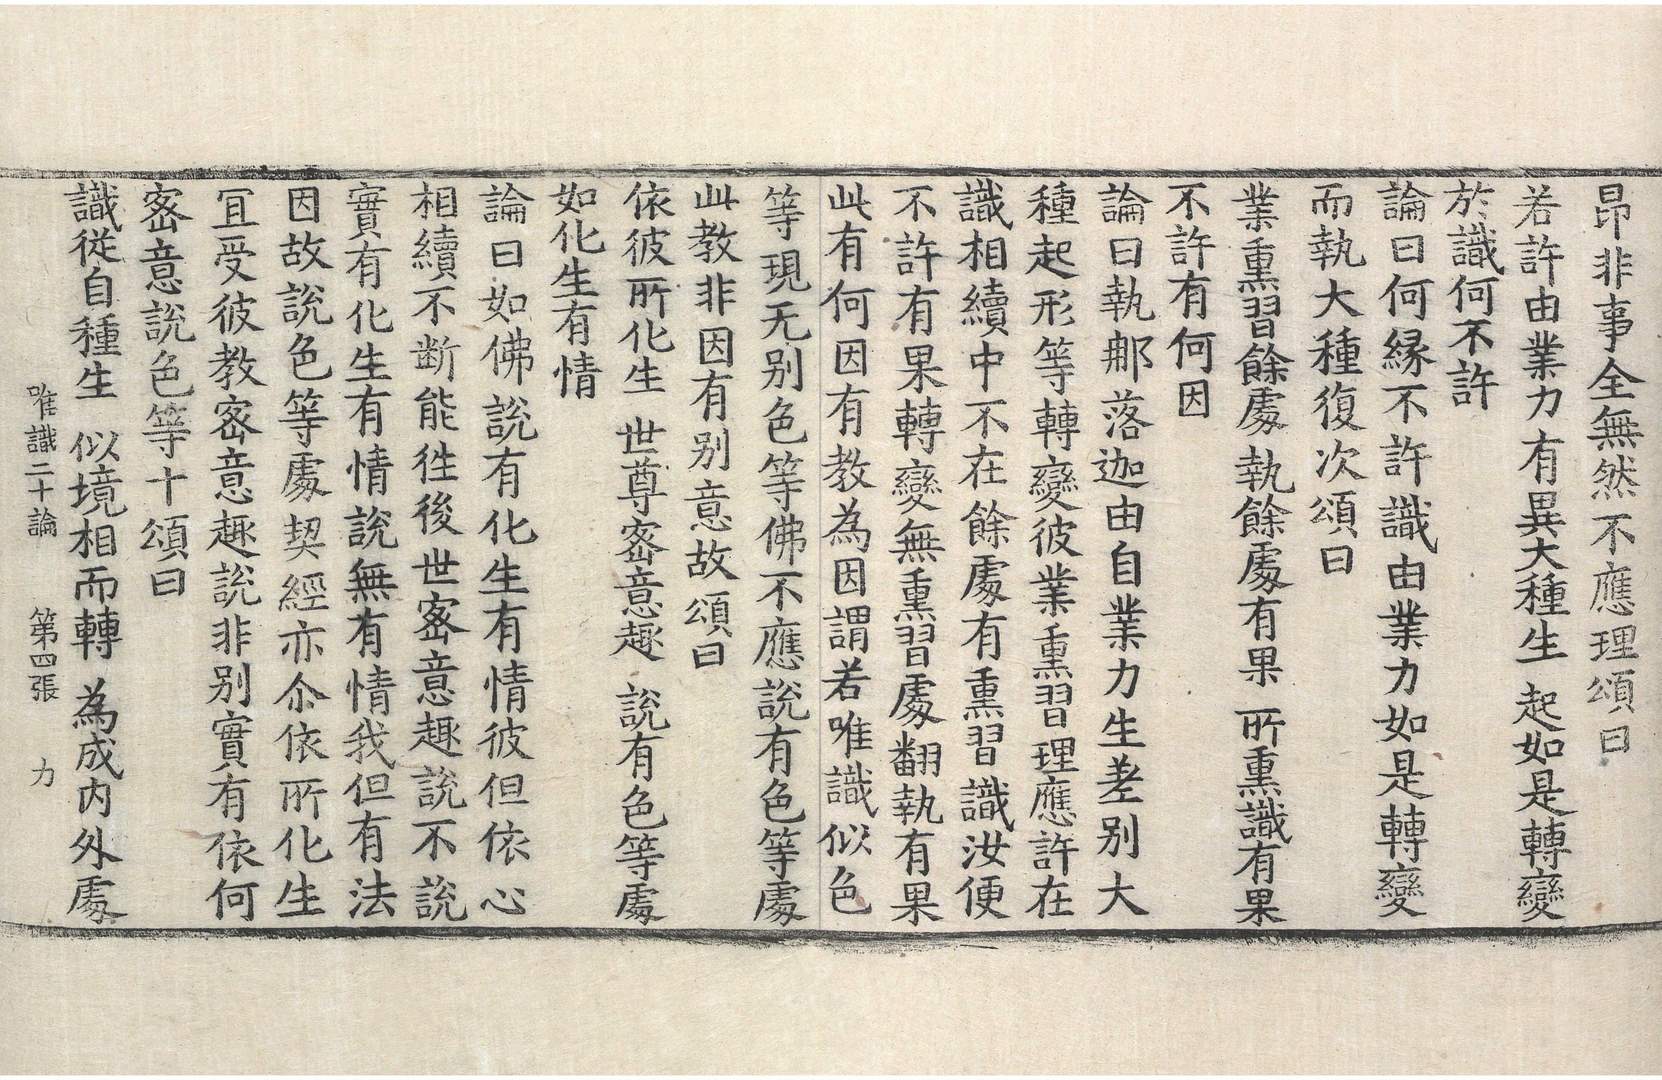 昂非事全無然不應理頌曰
若許由業力有異大種生 起如是轉變
於識何不許
論曰何緣不許識由業力如是轉變
而執大種復次頌曰
業熏習餘處執餘處有果 所熏識有果
不許有何因
論曰執那落迦由自業力生差别大
種起形等轉變彼業熏習理應許在
識相續中不在餘處有熏習識汝便
不許有果轉變無熏習處翻執有果
此有何因有教為因謂若唯識似色
等現无别色等佛不應說有色等處
此教非因有别意故頌曰
依彼所化生 世尊宻意趣 說有色等處
如化生有情
論曰如佛說有化生有情彼但依心
相續不断能徃後世宻意趣說不說
實有化生有情說無有情我但有法
因故說色等處契經亦尒依所化生
冝受彼教宻意趣說非别實有依何
宻意說色等十頌曰
識從自種生 似境相而轉 為成内外處
唯識二十論 第四張 力